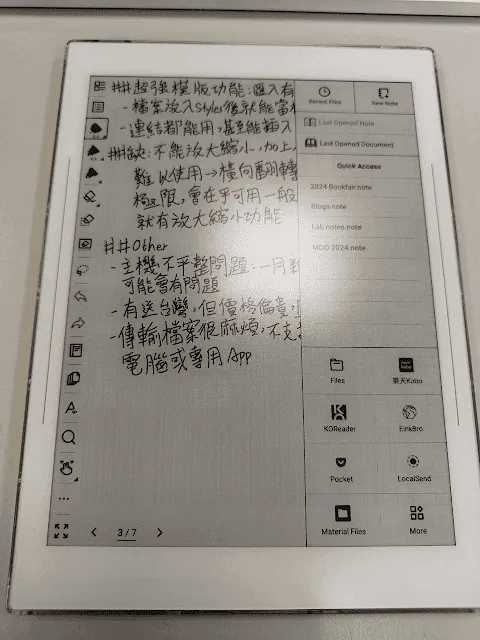 ##超強模版功能:匯入有
-檔案放入Style後就能當
-連結都能用,甚至能插入
##缺:不能放大縮小,加上
難以使用→橫向翻轉
極限,會在乎可用一般
就有放大縮小功能
##Other
-主機不平整問題:一月
可能會有問題
-有送台灣,但價格偏貴,
-傳輸檔案很麻煩,不支
電腦或專用App
3/7
Recent Files
New Note
Last Opened Note
Last Opened Document
Quick Access
2024 Bookfair.note
Blogs.note
Lab notes.note
MDO 2024.note
Files
樂天Kobo
KOReader
EinkBro
Pocket
LocalSend
Material Files
More